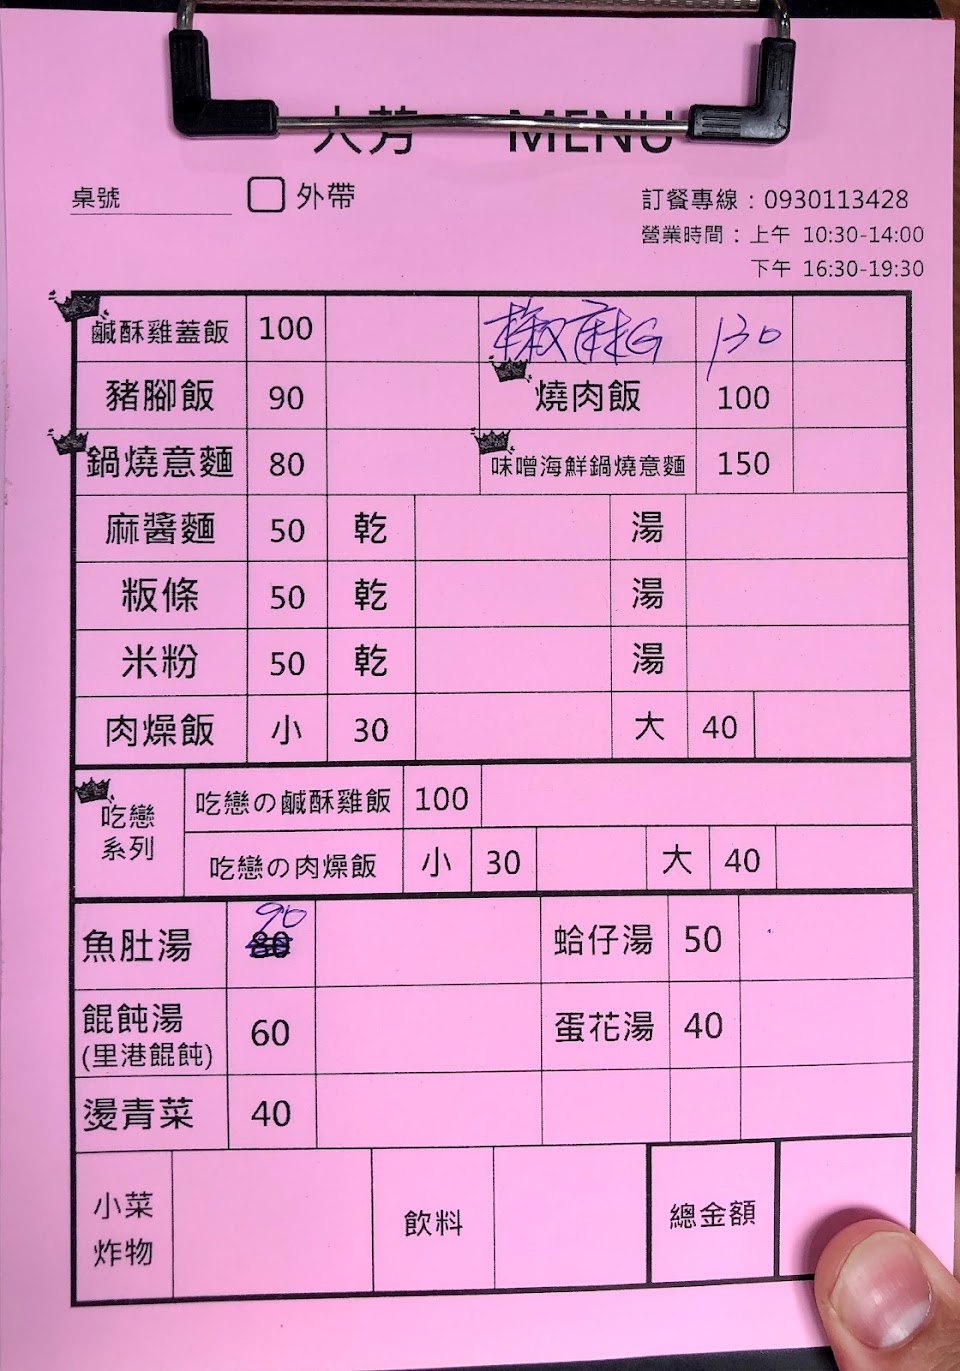 大芳 MENU
桌號 外帶 訂餐專線：0930113428
營業時間：上午 10:30-14:00
下午 16:30-19:30
鹹酥雞蓋飯 100 椒麻G 130
豬腳飯 90 燒肉飯 100
鍋燒意麵 80 味噌海鮮鍋燒意麵 150
麻醬麵 50 乾 湯
粄條 50 乾 湯
米粉 50 乾 湯
肉燥飯 小 30 大 40
吃戀系列 吃戀の鹹酥雞飯 100
吃戀の肉燥飯 小 30 大 40
魚肚湯 80 90 蛤仔湯 50
餛飩湯 60 蛋花湯 40
(里港餛飩)
燙青菜 40
小菜 炸物 飲料 總金額